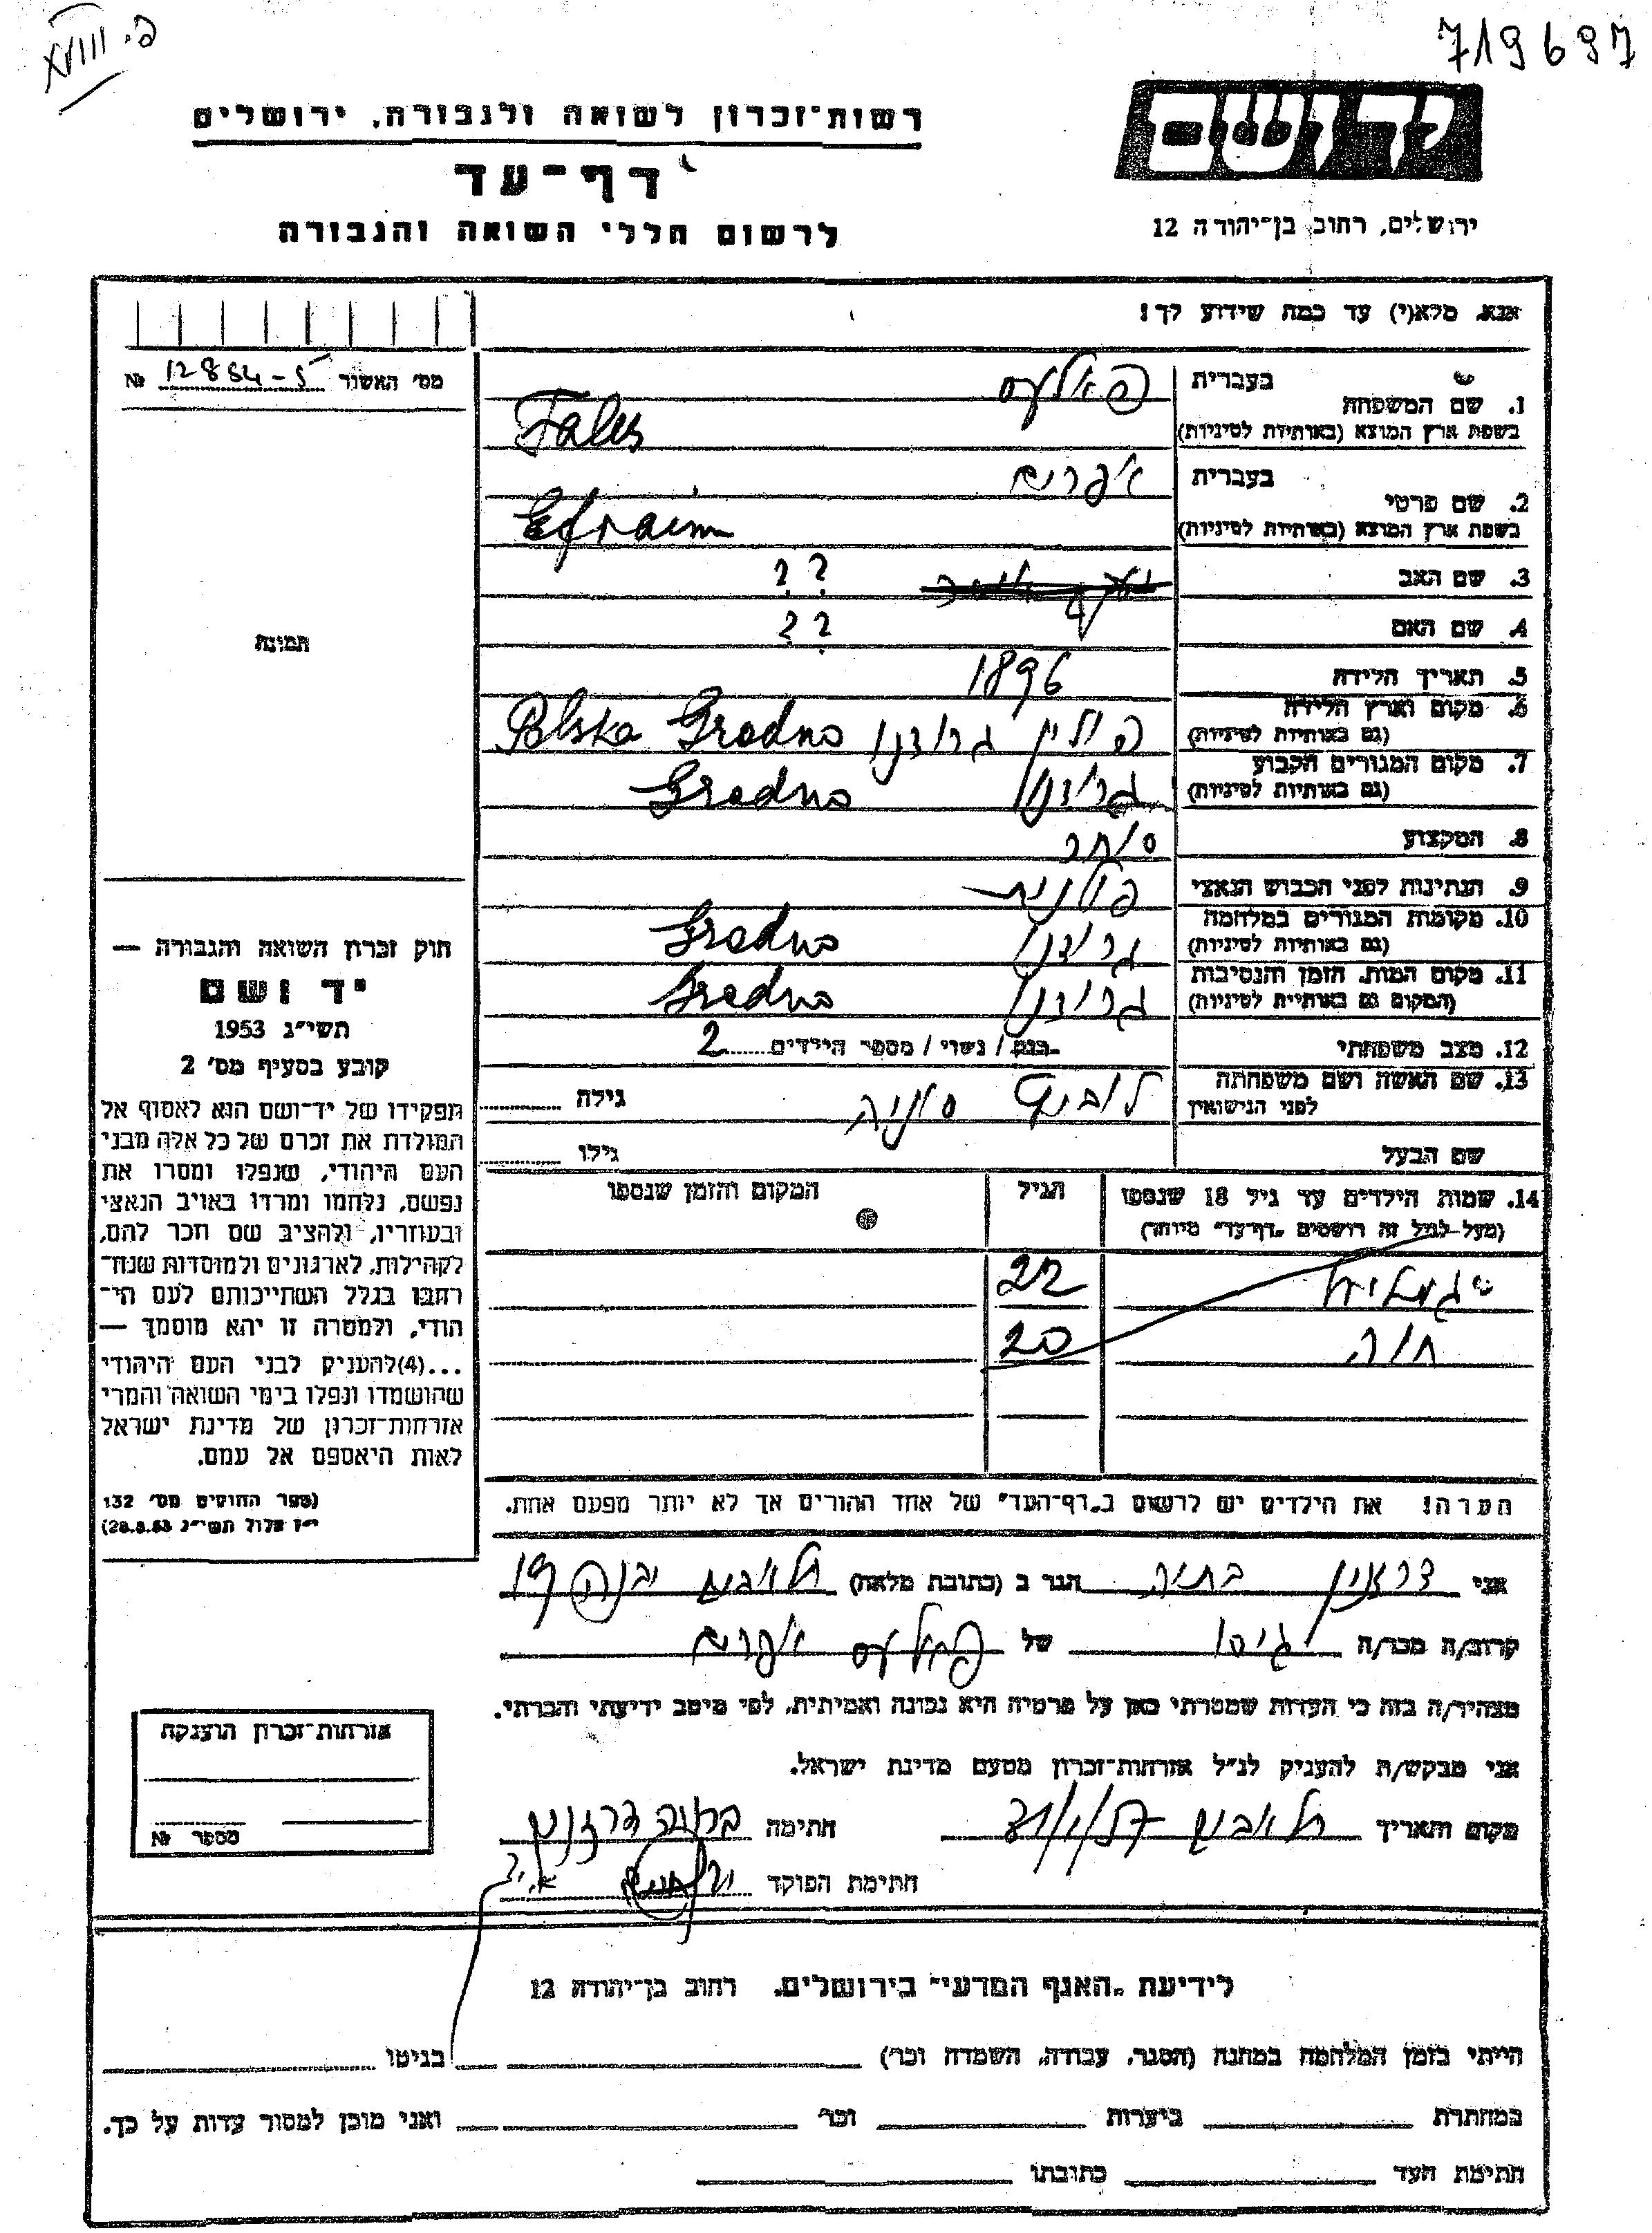 פ. XVIII
719697
ידושם
ירושלים, רחוב בן־יהודה 12
רשות־זכרון לשואה ולגבורה, ירושלים
דף־עד
לרשום חללי השואה והגבורה
אנא, מלא(י) עד כמה שידוע לך!
מס' האשור 12854-5 №
תמונה
1. שם המשפחה בעברית פאלעס
בשפת ארץ המוצא (באותיות לטיניות) Fales
2. שם פרטי בעברית אפרים
בשפת ארץ המוצא (באותיות לטיניות) Efraim
3. שם האב ? ?
4. שם האם ? ?
5. תאריך הלידה 1896
6. מקום וארץ הלידה (גם באותיות לטיניות) פולין גרודנו Polska Grodno
7. מקום המגורים הקבוע (גם באותיות לטיניות) גרודנו Grodno
8. המקצוע סוחר
9. הנתינות לפני הכבוש הנאצי פולנית
10. מקומות המגורים במלחמה (גם באותיות לטיניות) גרודנו Grodno
11. מקום המות, הזמן והנסיבות (המקום גם באותיות לטיניות) גרודנו Grodno
12. מצב משפחתי רווק / נשוי / מספר הילדים 2
13. שם האשה ושם משפחתה לפני הנישואין סוניה גילה
שם הבעל גילו
14. שמות הילדים עד גיל 18 שנספו הגיל המקום והזמן שנספו
(מעל לגיל זה רושמים „דף־עד" מיוחד)
22
חוה 20
הערה! את הילדים יש לרשום ב„דף־העד" של אחד ההורים אך לא יותר מפעם אחת.
חוק זכרון השואה והגבורה —
יד ושם
תשי"ג 1953
קובע בסעיף מס' 2
תפקידו של יד־ושם הוא לאסוף אל
המולדת את זכרם של כל אלה מבני
העם היהודי, שנפלו ומסרו את
נפשם, נלחמו ומרדו באויב הנאצי
ובעוזריו, ולהציב שם וזכר להם,
לקהילות, לארגונים ולמוסדות שנח־
רבו בגלל השתייכותם לעם הי־
הודי, ולמטרה זו יהא מוסמך —
...(4)להעניק לבני העם היהודי
שהושמדו ונפלו בימי השואה והמרי
אזרחות־זכרון של מדינת ישראל
לאות היאספם אל עמם.
(ספר החוקים מס' 132
י"ז אלול תשי"ג 28.8.53)
אני בתיה הגר ב (כתובת מלאה) תל אביב יבנה 19
קרוב/ה מכר/ה גיסו של פאלעס אפרים
מצהיר/ה בזה כי העדות שמסרתי כאן על פרטיה היא נכונה ואמיתית, לפי מיטב ידיעתי והכרתי.
אני מבקש/ת להעניק לנ"ל אזרחות־זכרון מטעם מדינת ישראל.
מקום ותאריך תל אביב חתימה
חתימת הפוקד
אזרחות־זכרון הוענקה
מספר №
לידיעת „האגף המדעי" בירושלים, רחוב בן־יהודה 12
הייתי בזמן המלחמה במחנה (הסגר, עבודה, השמדה וכו') בגיטו
במחתרת ביערות וכו' ואני מוכן למסור עדות על כך.
חתימת העד כתובתו